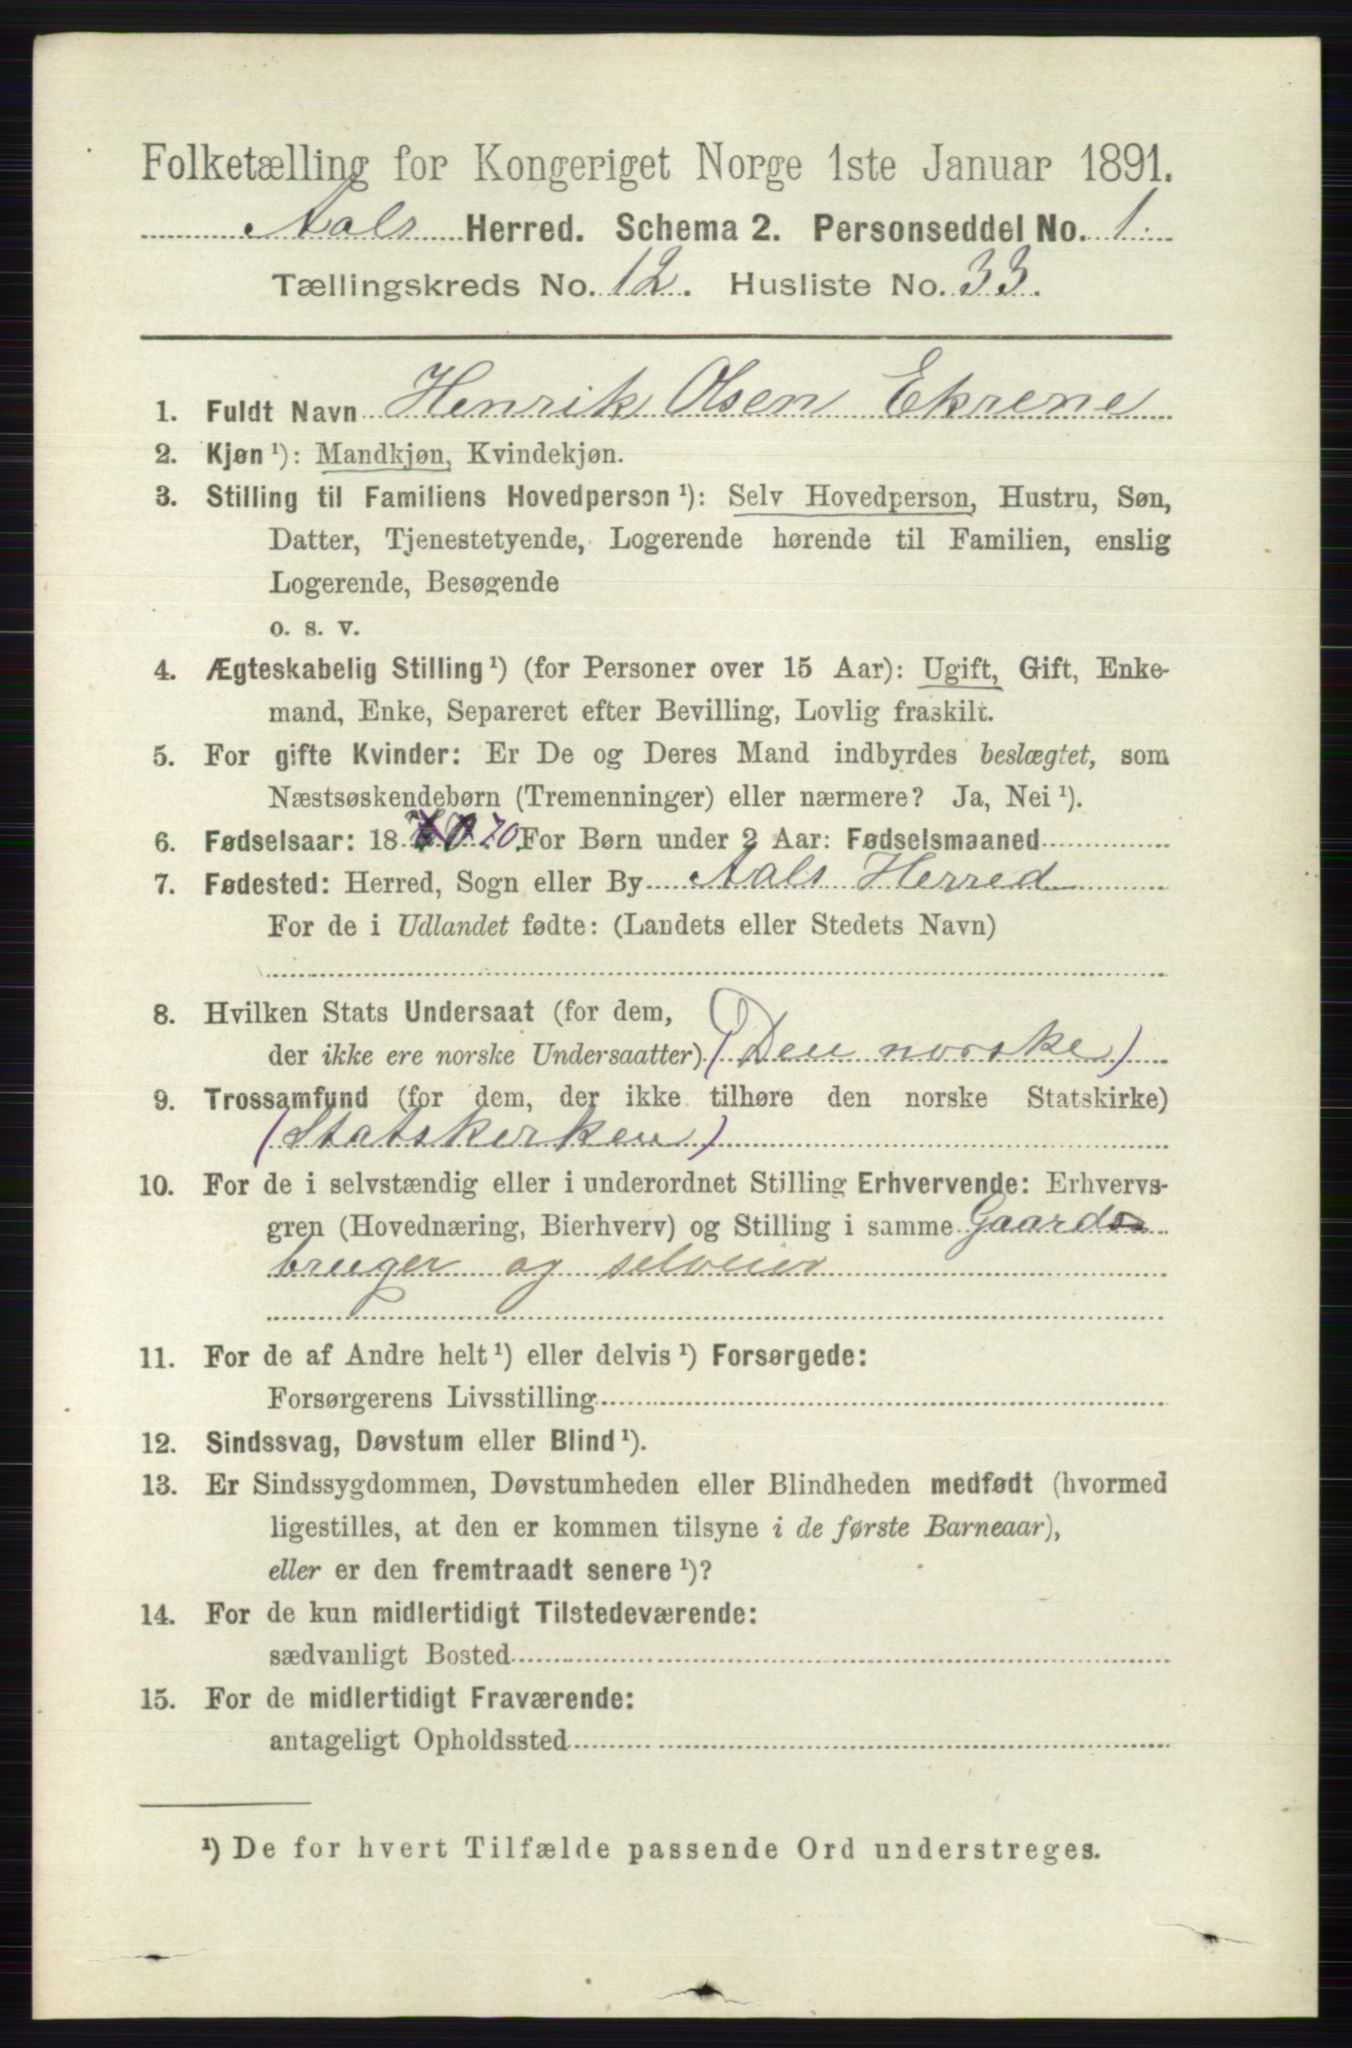 Folketælling for Kongeriget Norge 1ste Januar 1891.
Aals Herred. Schema 2. Personseddel No. 1.
Tællingskreds No. 12. Husliste No. 33.
1. Fuldt Navn Henrik Olsen Ekrene
2. Kjøn ¹): Mandkjøn, Kvindekjøn.
3. Stilling til Familiens Hovedperson ¹): Selv Hovedperson, Hustru, Søn,
Datter, Tjenestetyende, Logerende hørende til Familien, enslig
Logerende, Besøgende
o. s. v.
4. Ægteskabelig Stilling ¹) (for Personer over 15 Aar): Ugift, Gift, Enke-
mand, Enke, Separeret efter Bevilling, Lovlig fraskilt.
5. For gifte Kvinder: Er De og Deres Mand indbyrdes beslægtet, som
Næstsøskendebørn (Tremenninger) eller nærmere? Ja, Nei ¹).
6. Fødselsaar: 18 70. For Børn under 2 Aar: Fødselsmaaned
7. Fødested: Herred, Sogn eller By Aals Herred
For de i Udlandet fødte: (Landets eller Stedets Navn)
8. Hvilken Stats Undersaat (for dem,
der ikke ere norske Undersaatter) (Den norske)
9. Trossamfund (for dem, der ikke tilhøre den norske Statskirke)
(Statskerken)
10. For de i selvstændig eller i underordnet Stilling Erhvervende: Erhvervs-
gren (Hovednæring, Bierhverv) og Stilling i samme Gaards
bruger og selveier
11. For de af Andre helt ¹) eller delvis ¹) Forsørgede:
Forsørgerens Livsstilling
12. Sindssvag, Døvstum eller Blind ¹).
13. Er Sindssygdommen, Døvstumheden eller Blindheden medfødt (hvormed
ligestilles, at den er kommen tilsyne i de første Barneaar),
eller er den fremtraadt senere ¹)?
14. For de kun midlertidigt Tilstedeværende:
sædvanligt Bosted
15. For de midlertidigt Fraværende:
antageligt Opholdssted
¹) De for hvert Tilfælde passende Ord understreges.